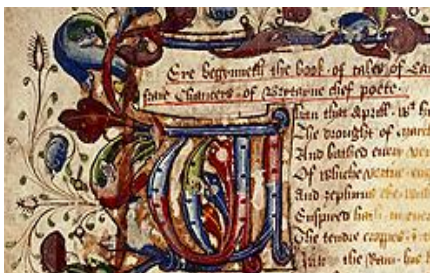 Ere begynneth the book of tales of Ca
fare Chaucers of Bretayne chef poete
Whan that Aprill wt h
The drought of march
And bathed euery
Of whiche vertue
And zephirus
Enspired hath in euer
The tendre croppes
Into the Ram has